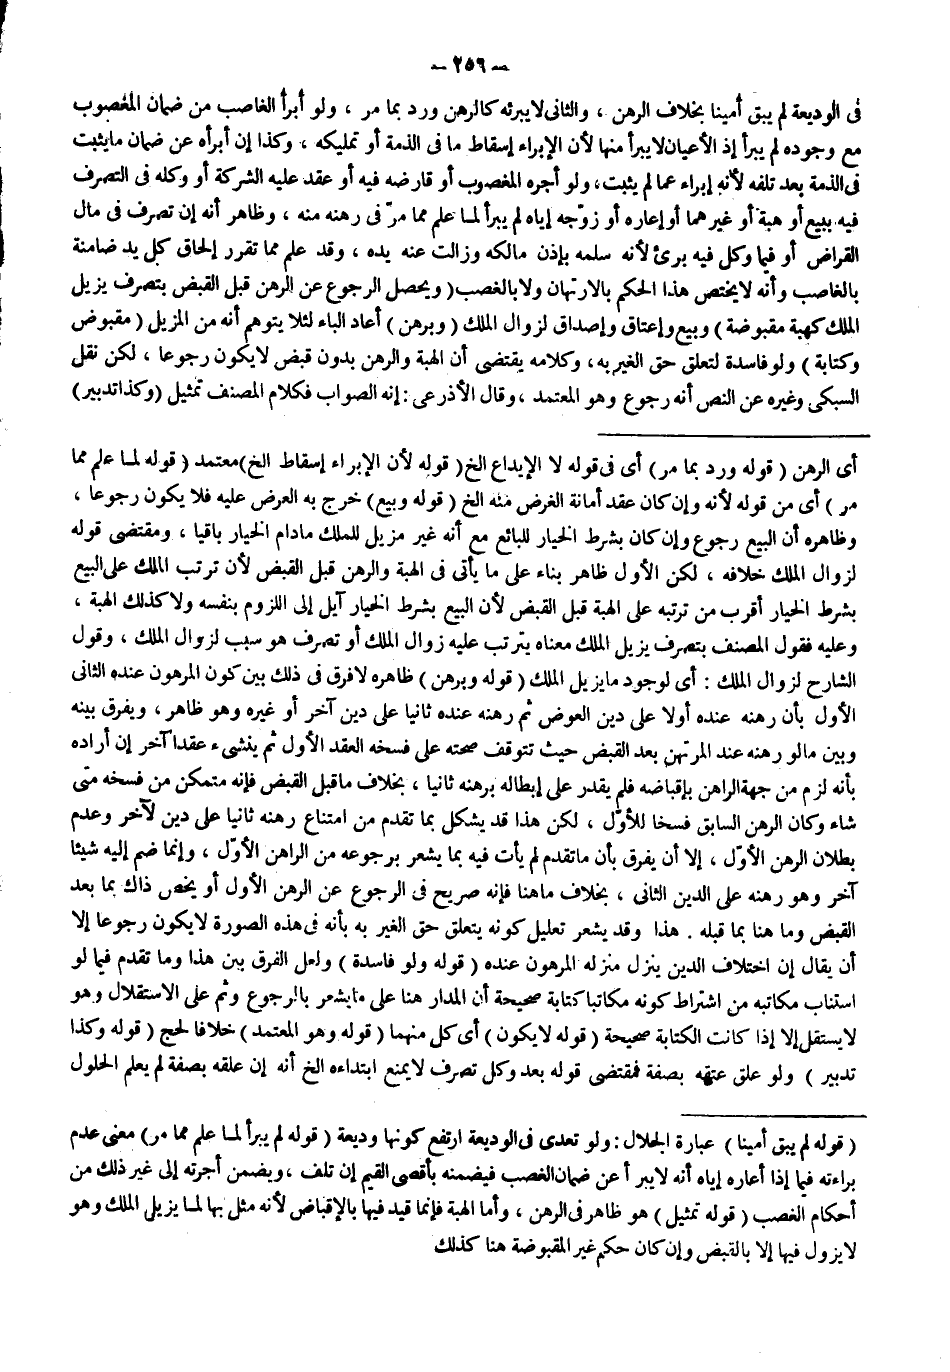 - ٢٥٦ -
فى الوديعة لم يبق أمينا بخلاف الرهن ، والثانى لا يبرئه كالرهن ورد بما مر ، ولو أبرأ الغاصب من ضمان المغصوب
مع وجوده لم يبرأ إذ الأعيان لا يبرأ منها لأن الإبراء إسقاط ما فى الذمة أو تمليكه ، وكذا إن أبرأه عن ضمان مايثبت
فى الذمة بعد تلفه لأنه إبراء عما لم يثبت، ولو أجره المغصوب أو قارضه فيه أو عقد عليه الشركة أو وكله فى التصرف
فيه ببيع أو هبة أو غيرهما أو إعاره أو زوّجه إياه لم يبرأ لما علم مما مرّ فى رهنه منه ، وظاهر أنه إن تصرف فى مال
القراض أو فيما وكل فيه برئ لأنه سلمه بإذن مالكه وزالت عنه يده ، وقد علم مما تقرر إلحاق كل يد ضامنة
بالغاصب وأنه لا يختص هذا الحكم بالارتهان ولا بالغصب ( ويحصل الرجوع عن الرهن قبل القبض بتصرف يزيل
الملك كهبة مقبوضة ) وبيع وإعتاق وإصداق لزوال الملك ( وبرهن ) أعاد الباء لئلا يتوهم أنه من المزيل ( مقبوض
وكتابة ) ولو فاسدة لتعلق حق الغير به، وكلامه يقتضى أن الهبة والرهن بدون قبض لا يكون رجوعا ، لكن نقل
السبكى وغيره عن النص أنه رجوع وهو المعتمد ، وقال الأذرعى : إنه الصواب فكلام المصنف تمثيل (وكذا تدبير)
أى الرهن ( قوله ورد بما مر ) أى فى قوله لا الإيداع الخ ( قوله لأن الإبراء إسقاط الخ ) معتمد ( قوله لما علم مما
مر ) أى من قوله لأنه وإن كان عقد أمانة الغرض منه الخ ( قوله وبيع ) خرج به العرض عليه فلا يكون رجوعا ،
وظاهره أن البيع رجوع وإن كان بشرط الخيار للبائع مع أنه غير مزيل للملك مادام الخيار باقيا ، ومقتضى قوله
لزوال الملك خلافه ، لكن الأول ظاهر بناء على ما يأتى فى الهبة والرهن قبل القبض لأن ترتب الملك على البيع
بشرط الخيار أقرب من ترتبه على الهبة قبل القبض لأن البيع بشرط الخيار آيل إلى اللزوم بنفسه ولا كذلك الهبة ،
وعليه فقول المصنف بتصرف يزيل الملك معناه يترتب عليه زوال الملك أو تصرف هو سبب لزوال الملك ، وقول
الشارح لزوال الملك : أى لوجود مايزيل الملك ( قوله وبرهن ) ظاهره لافرق فى ذلك بين كون المرهون عنده الثانى
الأول بأن رهنه عنده أولا على دين العوض ثم رهنه عنده ثانيا على دين آخر أو غيره وهو ظاهر ، ويفرق بينه
وبين مالو رهنه عند المرتهن بعد القبض حيث تتوقف صحته على فسخه العقد الأول ثم ينشىء عقدا آخر إن أراده
بأنه لزم من جهة الراهن بإقباضه فلم يقدر على إبطاله برهنه ثانيا ، بخلاف ماقبل القبض فإنه متمكن من فسخه متى
شاء وكان الرهن السابق فسخا للأوّل ، لكن هذا قد يشكل بما تقدم من امتناع رهنه ثانيا على دين لآخر وعدم
بطلان الرهن الأوّل ، إلا أن يفرق بأن ماتقدم لم يأت فيه بما يشعر برجوعه من الراهن الأوّل ، وإنما ضم إليه شيئا
آخر وهو رهنه على الدين الثانى ، بخلاف ماهنا فإنه صريح فى الرجوع عن الرهن الأول أو يخص ذاك بما بعد
القبض وما هنا بما قبله . هذا وقد يشعر تعليل كونه يتعلق حق الغير به بأنه فى هذه الصورة لا يكون رجوعا إلا
أن يقال إن اختلاف الدين ينزل منزله المرهون عنده ( قوله ولو فاسدة ) ولعل الفرق بين هذا وما تقدم فيما لو
استناب مكاتبه من اشتراط كونه مكاتبا كتابة صحيحة أن المدار هنا على مايشعر بالرجوع وثم على الاستقلال وهو
لا يستقل إلا إذا كانت الكتابة صحيحة ( قوله لا يكون ) أى كل منهما ( قوله وهو المعتمد ) خلافا لحج ( قوله وكذا
تدبير ) ولو علق عتقه بصفة فمقتضى قوله بعد وكل تصرف لا يمنع ابتداءه الخ أنه إن علقه بصفة لم يعلم الحلول
( قوله لم يبق أمينا ) عبارة الجلال : ولو تعدى فى الوديعة ارتفع كونها وديعة ( قوله لم يبرأ لما علم مما مر) معنى عدم
براءته فيما إذا أعاره إياه أنه لا يبرأ عن ضمان الغصب فيضمنه بأقصى القيم إن تلف ، ويضمن أجرته إلى غير ذلك من
أحكام الغصب ( قوله تمثيل ) هو ظاهر فى الرهن ، وأما الهبة فإنما قيد فيها بالإقباض لأنه مثل بها لما يزيل الملك وهو
لا يزول فيها إلا بالقبض وإن كان حكم غير المقبوضة هنا كذلك